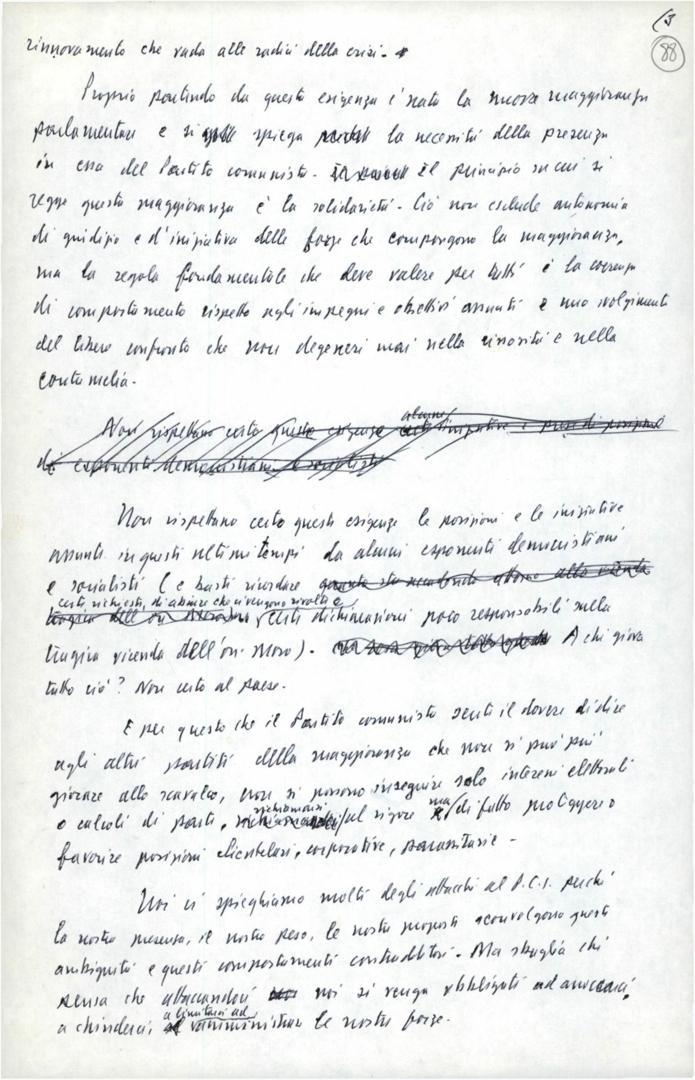 13
88
rinnovamento che vada alle radici della crisi.
Proprio partendo da questa esigenza è nata la nuova maggioranza
parlamentare e si spiega la necessità della presenza
in essa del Partito comunista. Il principio su cui si
regge questa maggioranza è la solidarietà. Ciò non esclude autonomia
di giudizio e d'iniziativa delle forze che compongono la maggioranza,
ma la regola fondamentale che deve valere per tutti è la coerenza
di comportamento rispetto agli impegni e obiettivi assunti e uno svolgimento
del libero confronto che non degeneri mai nella rissosità e nella
contumelia.
Non rispettano certo queste esigenze alcune iniziative e prese di posizione
di esponenti democristiani e socialisti
Non rispettano certo questa esigenza le posizioni e le iniziative
assunte in questi ultimi tempi da alcuni esponenti democristiani
e socialisti (e basti ricordare
certe richieste di abiure che ci vengono rivolte e
certe dichiarazioni poco responsabili sulla
tragica vicenda dell'on. Moro). A chi giova
tutto ciò? Non certo al paese.
E per questo che il Partito comunista sente il dovere di dire
agli altri partiti della maggioranza che non si può più
giocare allo scavalco, non si possono inseguire solo interessi elettorali
o calcoli di parte, richiamarsi al rigore ma di fatto proteggere o
favorire posizioni clientelari, corporative, parassitarie.
Noi ci spieghiamo molti degli attacchi al P.C.I. perché
la nostra presenza, il nostro peso, le nostre proposte sconvolgono queste
ambiguità e questi comportamenti contraddittori. Ma sbaglia chi
pensa che attaccandoci noi si venga obbligati ad arroccarci,
a chiuderci, a limitarci ad amministrare le nostre forze.